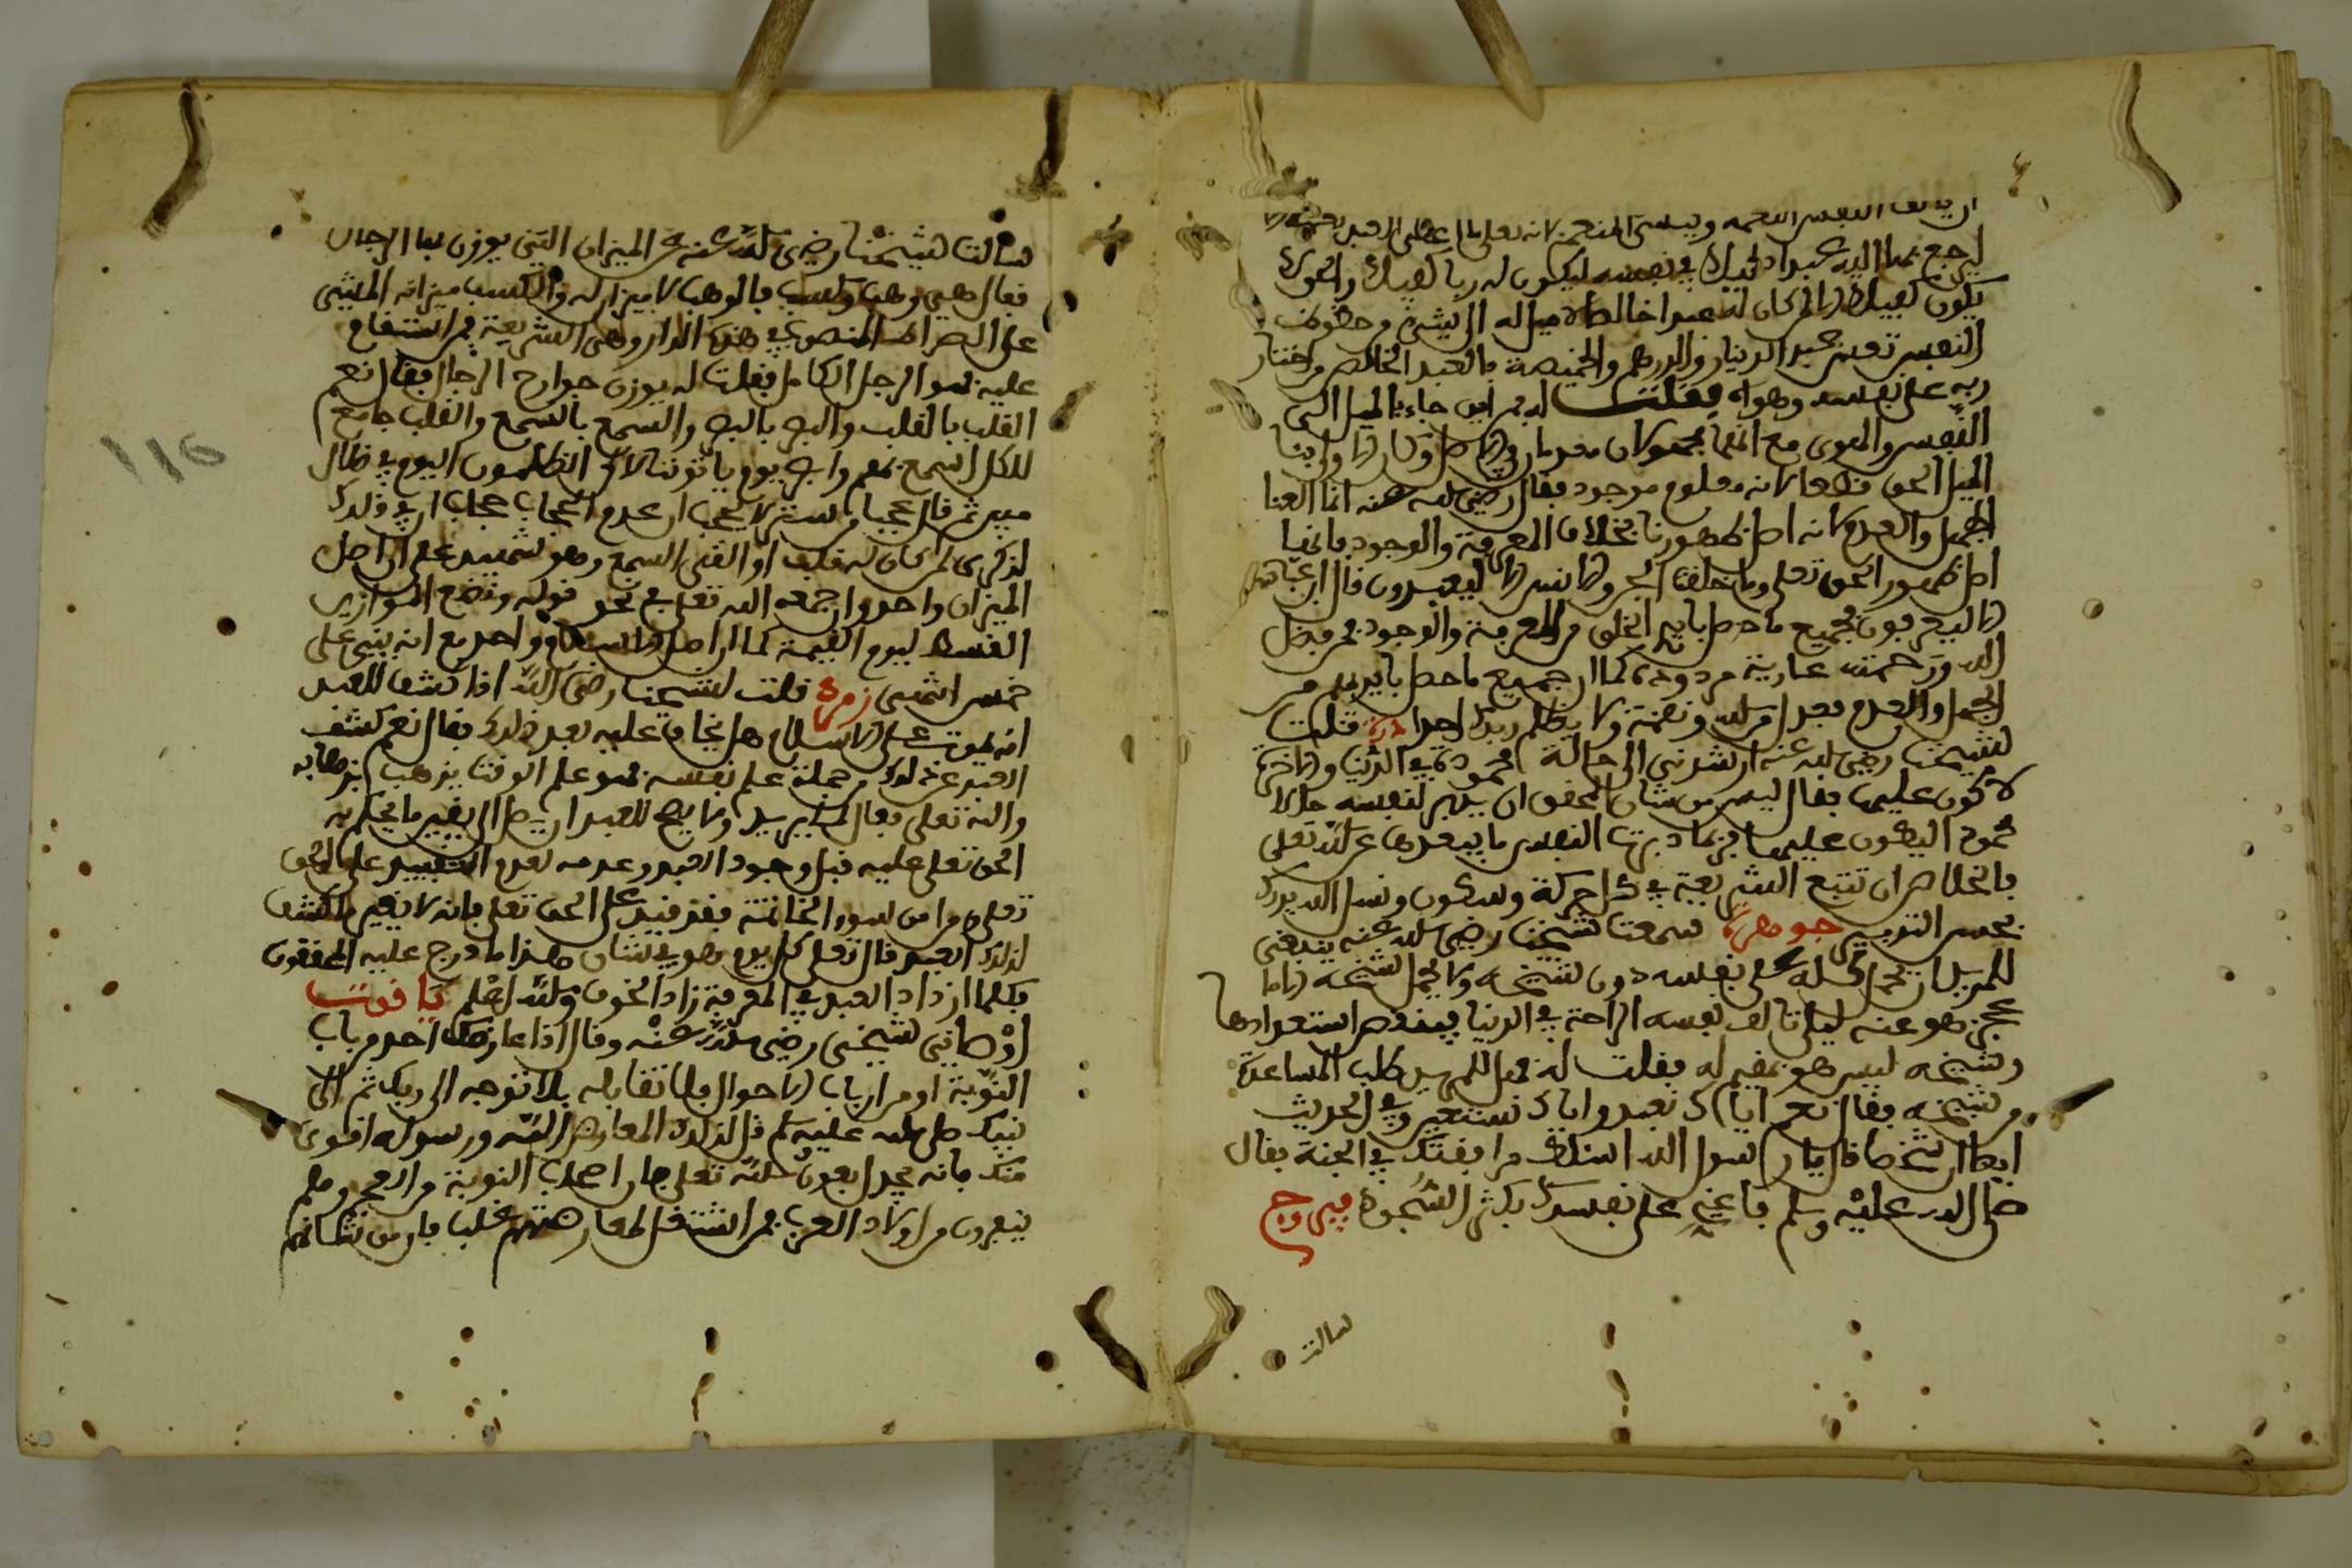 ان يالف النفس النعمه وينسى المنعم لانه تعلى ما اعطى العبد نعمة الا
ليرجع بها اليه عبدا ذليلا في نفسه ليكون له ربا كفيلا والحق لا
يكون كفيلا الا لمن كان له عبدا خالصا لا ميل له الى شيء من حظوظ
النفس تعس عبد الدينار والدرهم والخميصة فالعبد الخالص من اختار
ربه على نفسه وهواه فقلت له فمن اين جاء الميل الى
النفس والهوى مع انهما مجهولان معدمان في الاصل وكان الاولى بنا
الميل للحق قطعا لانه معلوم موجود فقال رضي الله عنه انما العنا
الجهل والعدم لانه اصل ظهورنا بخلاف المعرفة والوجود فانهما
اصل ظهور الحق تعلى وما خلقت الجن والانس الا ليعبدون قال ابن عباس
الا ليعرفون فجميع ما حصل بايد الخلق من المعرفة والوجود فمن فضل
الله ورحمته عارية مردودة كما ان جميع ما حصل بايديهم من
الجهل والعدم فعدل من الله ونقمة ولا يظلم ربك احدا درة قلت
لشيخنا رضي الله عنه ارشدني الى حالة محمودة في الدنيا والاخرة
لاكون عليها فقال ليس من شان المحقق ان يدبر لنفسه حالا
محمود اليكون عليها فربما دبرت النفس ما يبعدها عن الله تعلى
فالخلاص ان تتبع الشريعة في كل حركة وسكون ونسل الله يدرك
بحسن التدبير جوهرة سمعت شيخنا رضي الله عنه ينبغي
للمريد ان يحمل كله على نفسه دون شيخه ولا يحمل شيخه الا ما
عجز هو عنه ليلا تالف نفسه الراحة في الدنيا فينقص استعدادها
وشيخه ليس هو بمقيم له فقلت له فهل للمريد طلب المساعدة
من شيخه فقال نعم اياك نعبد واياك نستعين وفي الحديث
ايضا ان شخصا قال يا رسول الله اسئلك مرافقتك في الجنة فقال
صلى الله عليه وسلم فاعني على نفسك بكثرة السجود فيروزج
سالت
سالت شيخنا رضي الله عنه عن الميزان التي يوزن بها الرجال
فقال هي وهب وكسب فالوهب لا ميزان له والكسب ميزانه المشي
على الصراط المنصوب في هذه الدار وهي الشريعة فمن استقام
عليه فهو الرجل الكامل فقلت له يوزن جوارح الرجل فقال نعم
القلب بالقلب والبصر بالبصر والسمع بالسمع والقلب جامع
للكل اسمع بهم وابصر يوم ياتوننا لاكن الظلمون اليوم في ظلل
مبين ثم قال عجبا من ستر لا يحجب ان عدم الحجاب حجاب ان في ذلك
لذكرى لمن كان له قلب او القى السمع وهو شهيد على ان اصل
الميزان واحد وان جمعه الله تعلى في نحو قوله ونضع الموازين
القسط ليوم القيمة كما ان اصل الاسلام واحد مع انه بني على
خمس انتهى زمردة قلت لشيخنا رضي الله عنه اذا كشف للعبد
انه يموت على الاسلام هل يخاف عليه بعد ذلك فقال نعم كشف
العبد عن ذلك من جملة علم نفسه فهو علم الوقت يذهب بذهابه
والله تعلى فعال لما يريد ولا يصح للعبد ان يصل الى يقين ما يحكم به
الحق تعلى عليه قبل وجود العبد وعدمه لعدم التقييد على الحق
تعلى ومن امن سوء الخاتمة فقد قيد على الحق تعلى فانه لا يغير لكشف
لذلك العبد قال تعلى كل يوم هو في شان هذا ما درج عليه المحققون
فكلما ازداد العبد في المعرفة زاد الخوف والله اعلم ياقوت
اوصاني شيخي رضي الله عنه وقال اذا عارضك احد من ارباب
النوبة او من ارباب الاحوال فلا تقابله بل توجه الى ربك ثم الى
نبيك صلى الله عليه وسلم قل لذلك المعارض الله ورسوله اقوى
منك فانه يعدل بعون الله تعلى صار اصحاب النوبة من العجم وهم
ينفرون من اولاد العرب فمن اشتغل لمعارضتهم غلب فان من شانهم
١١٥